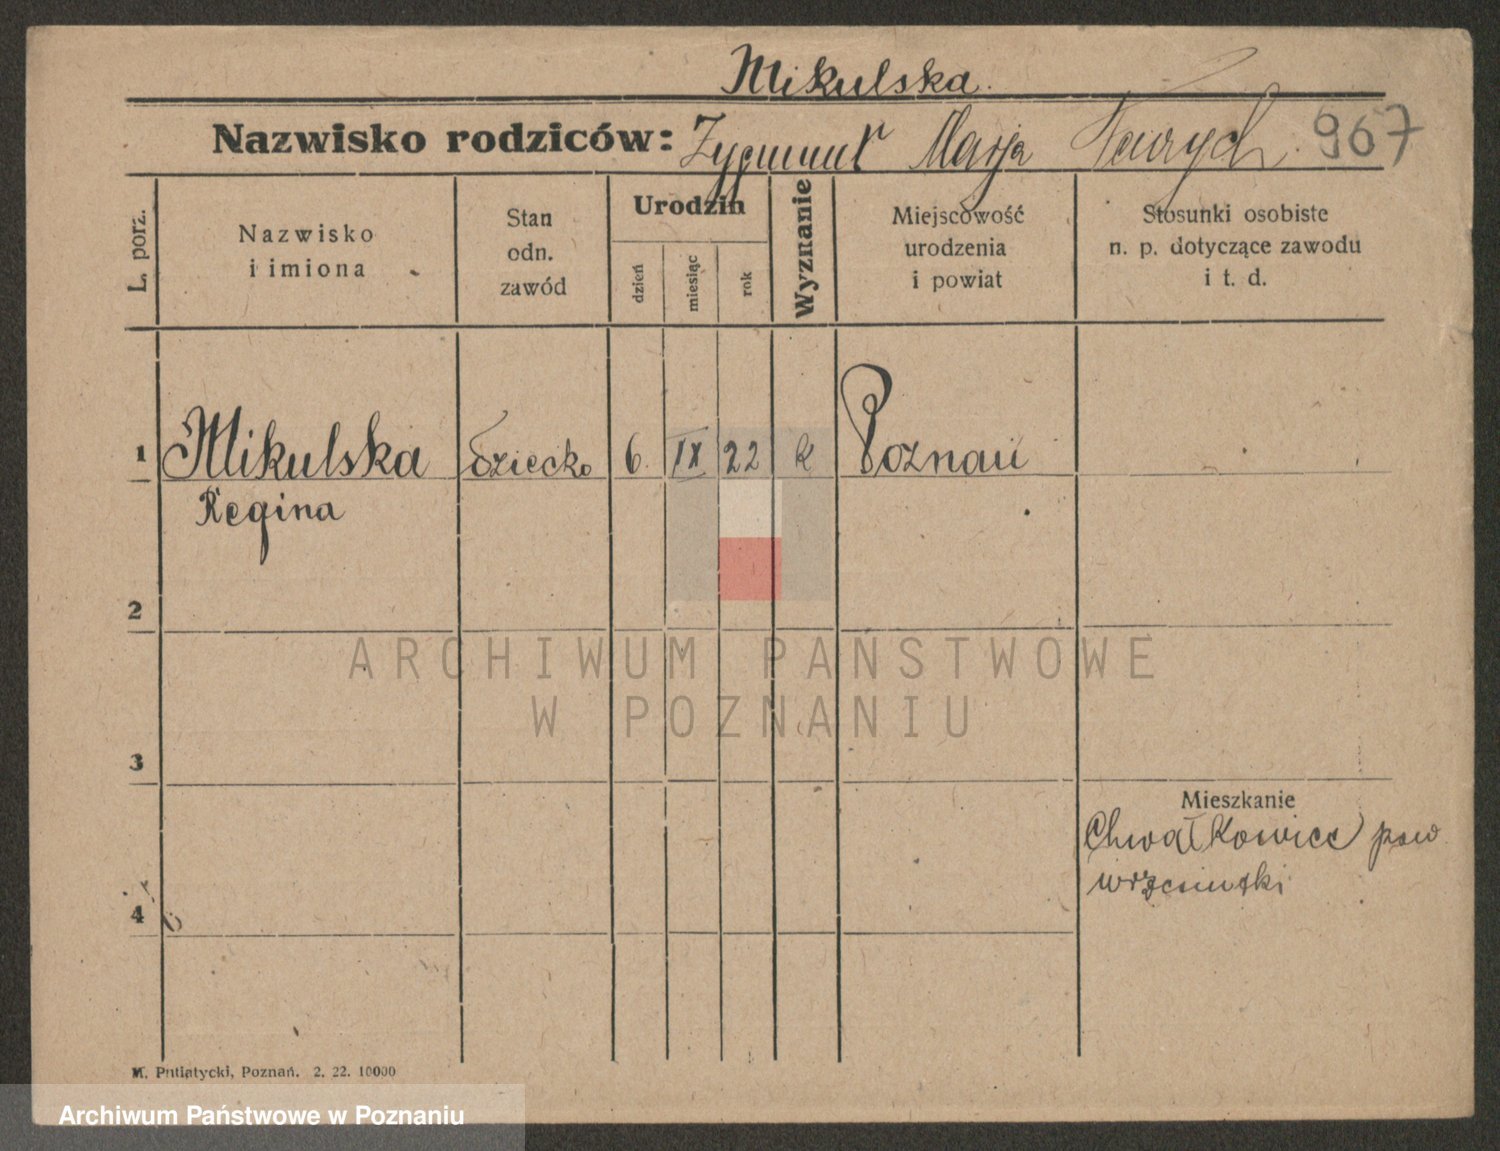 Mikulska.
Nazwisko rodziców: Zygmunt Marja 967
L. porz.
Nazwisko
i imiona
Stan
odn.
zawód
Urodzin
dzień
miesiąc
rok
Wyznanie
Miejscowość
urodzenia
i powiat
Stosunki osobiste
n. p. dotyczące zawodu
i t. d.
1 Mikulska dziecko 6. IX 22 k Poznań
Regina
2
ARCHIWUM PAŃSTWOWE
W POZNANIU
3
Mieszkanie
Chwałkowice pow
wrzesiński
4
M. Putiatycki, Poznań. 2. 22. 10000
Archiwum Państwowe w Poznaniu